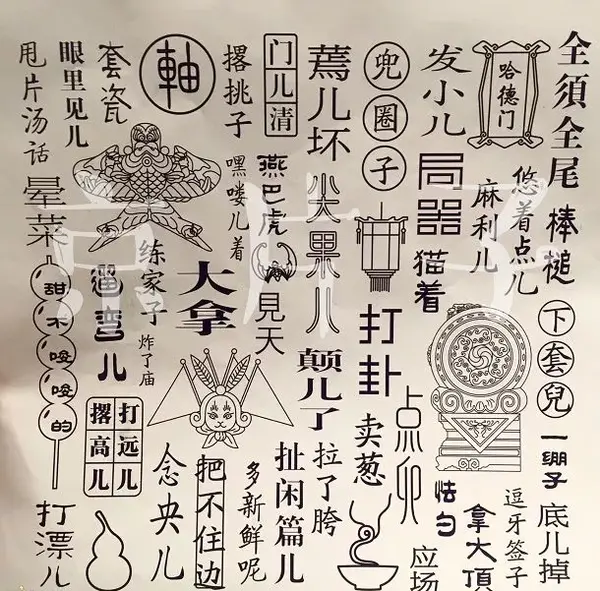 甩片汤话
眼里见儿
套瓷
軸
撂挑子
门儿清
蔫儿坏
兜圈子
发小儿
哈德门
全須全尾
晕菜
嘿喽儿着
燕巴虎
尖果儿
局器
麻利儿
悠着点儿
棒槌
甜不唆唆的
遛弯儿
练家子
炸了庙
大拿
見天
颠儿了
打卦
猫着
下套兒
撂高儿
打远儿
念央儿
把不住边
多新鲜呢
扯闲篇儿
拉了胯
卖葱
点卯
怯勺
一绷子
打漂儿
应场
拿大頂
逗牙签子
底儿掉
京片子